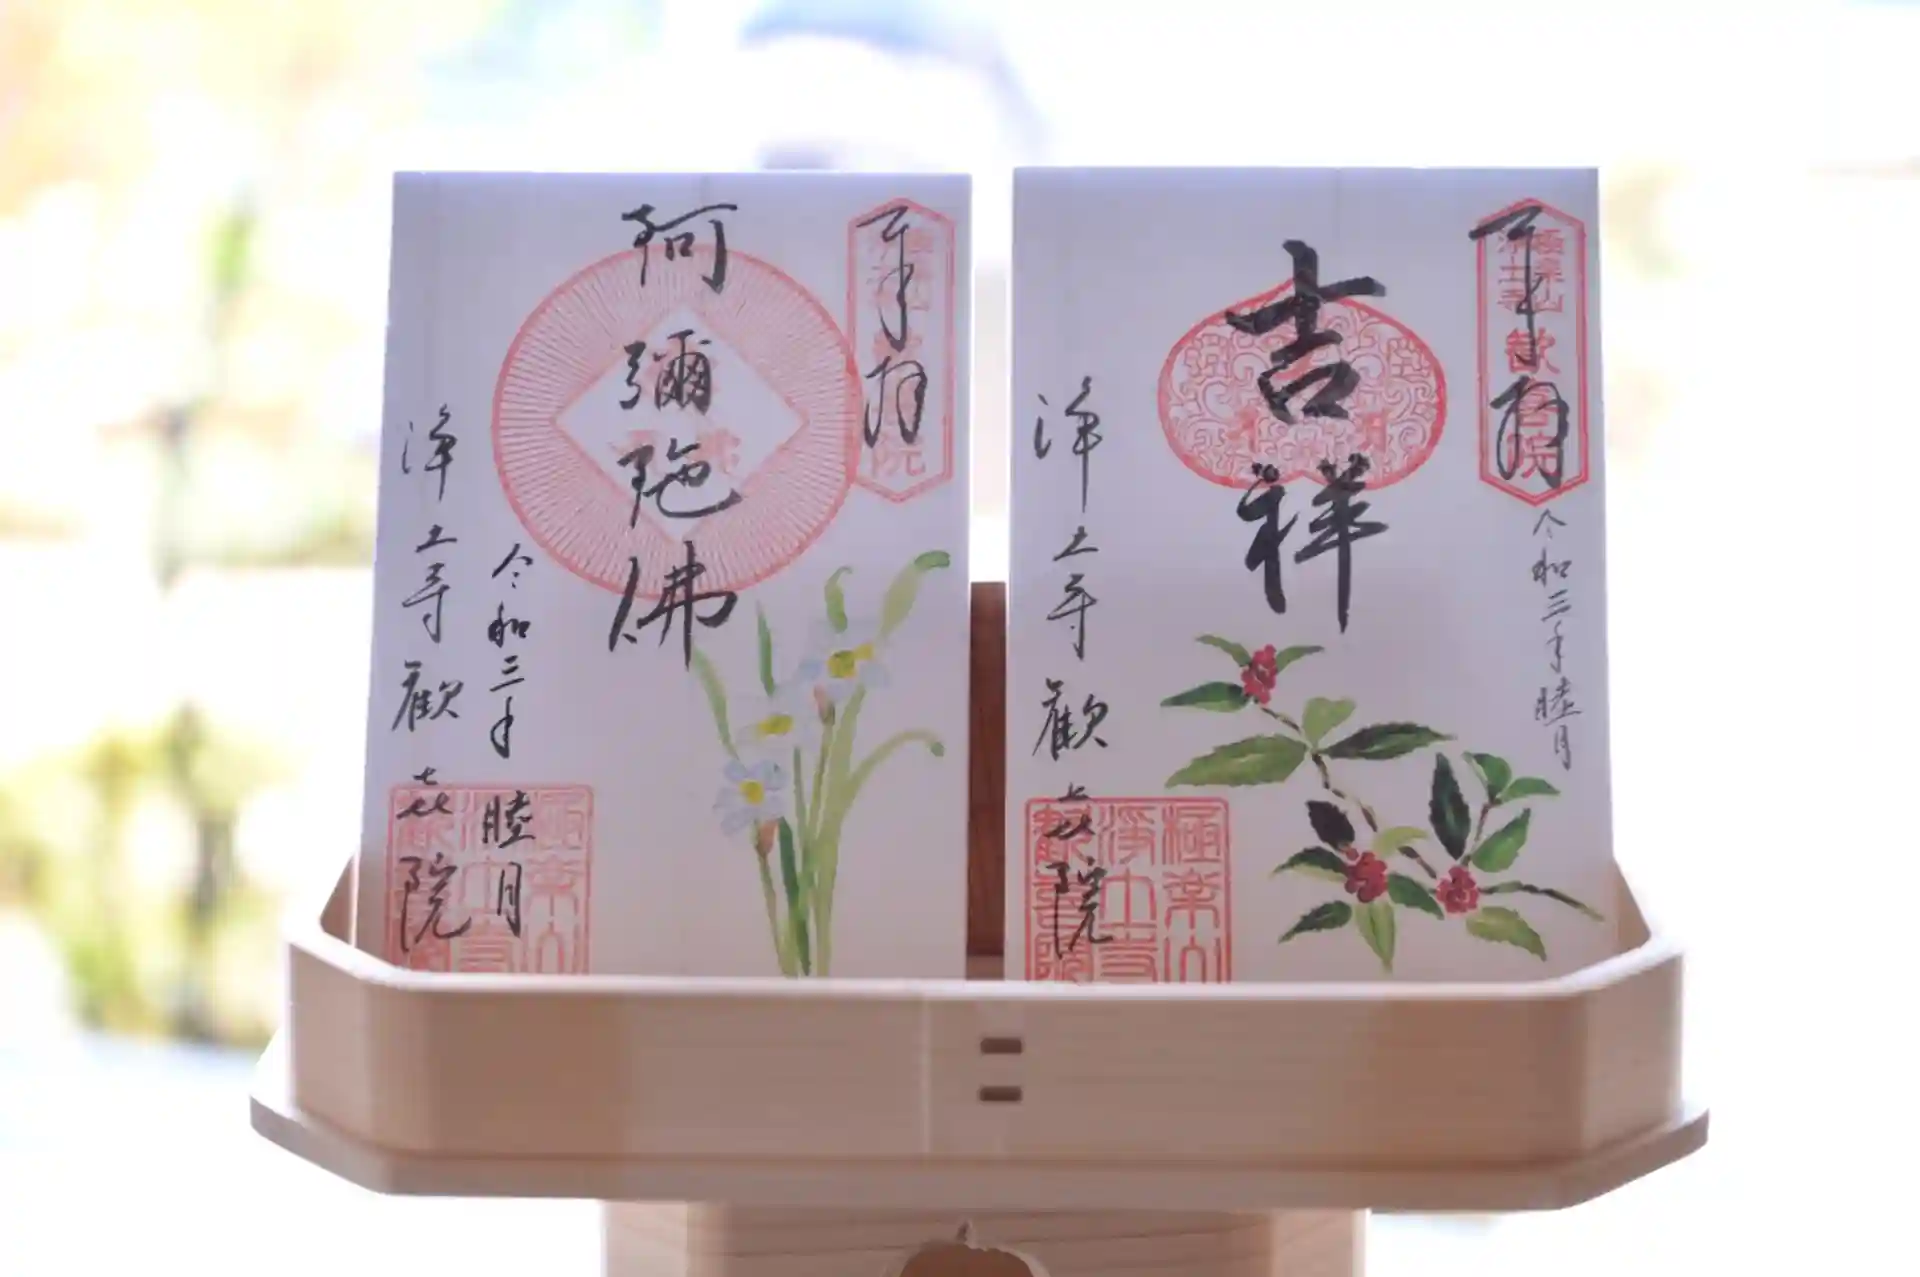 奉拝
阿彌陀佛
令和三年 睦月
浄土寺 歓喜院
極楽山
浄土寺
歓喜院
奉拝
極楽山
浄土寺
歓喜院
令和三年睦月
吉祥
浄土寺 歓喜院
極楽山
浄土寺
歓喜院